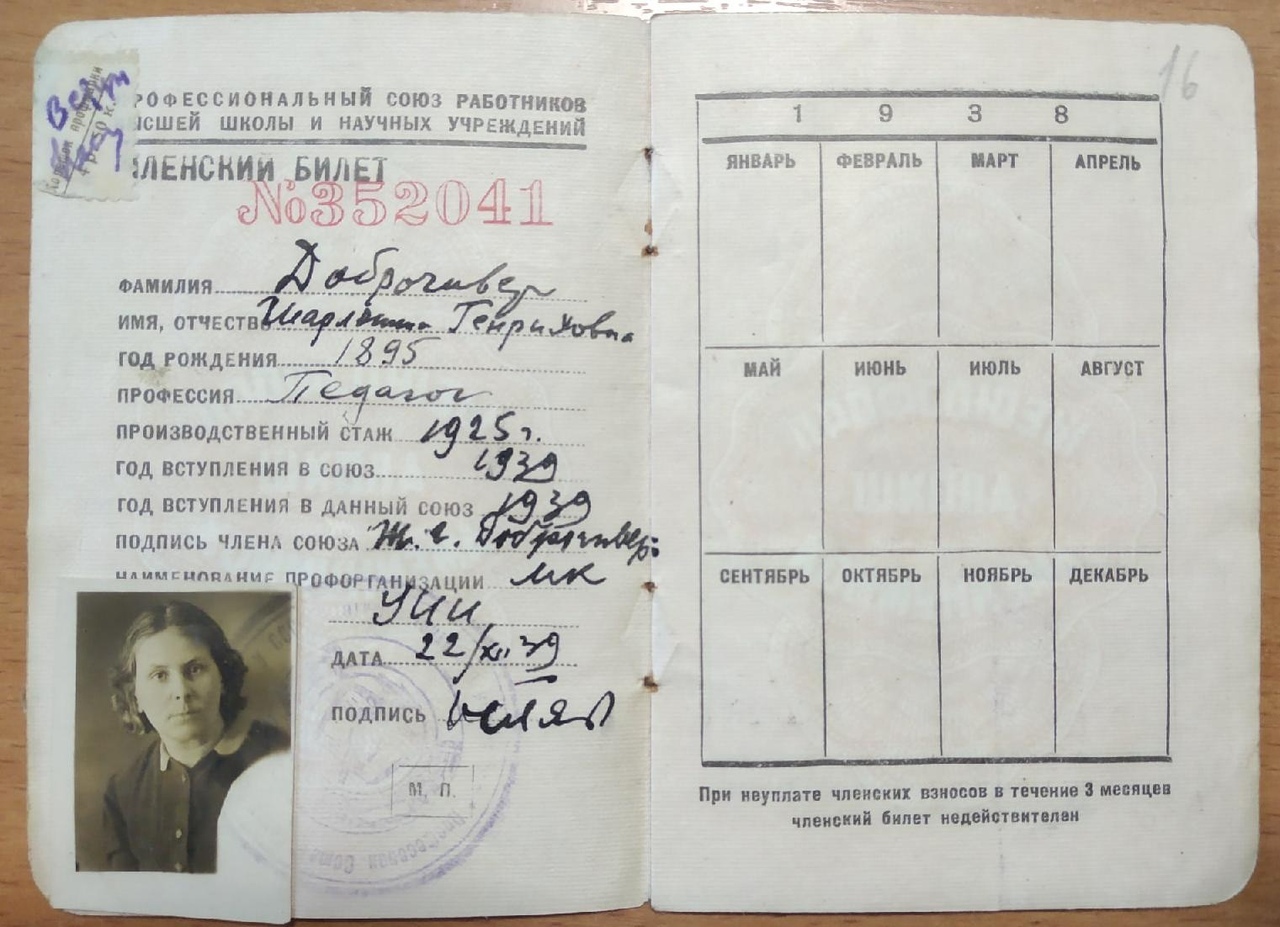 РОФЕССИОНАЛЬНЫЙ СОЮЗ РАБОТНИКОВ
ЫСШЕЙ ШКОЛЫ И НАУЧНЫХ УЧРЕЖДЕНИЙ
ЧЛЕНСКИЙ БИЛЕТ
№352041
ФАМИЛИЯ Доброчивер
ИМЯ, ОТЧЕСТВО Генриховна
ГОД РОЖДЕНИЯ 1895
ПРОФЕССИЯ Педагог
ПРОИЗВОДСТВЕННЫЙ СТАЖ 1925 г.
ГОД ВСТУПЛЕНИЯ В СОЮЗ 1939
ГОД ВСТУПЛЕНИЯ В ДАННЫЙ СОЮЗ 1939
ПОДПИСЬ ЧЛЕНА СОЮЗА Доброчивер
НАИМЕНОВАНИЕ ПРОФОРГАНИЗАЦИИ МК
УИИ
ДАТА 22/XII 39
ПОДПИСЬ
М. П.
16
1938
ЯНВАРЬ ФЕВРАЛЬ МАРТ АПРЕЛЬ
МАЙ ИЮНЬ ИЮЛЬ АВГУСТ
СЕНТЯБРЬ ОКТЯБРЬ НОЯБРЬ ДЕКАБРЬ
При неуплате членских взносов в течение 3 месяцев
членский билет недействителен